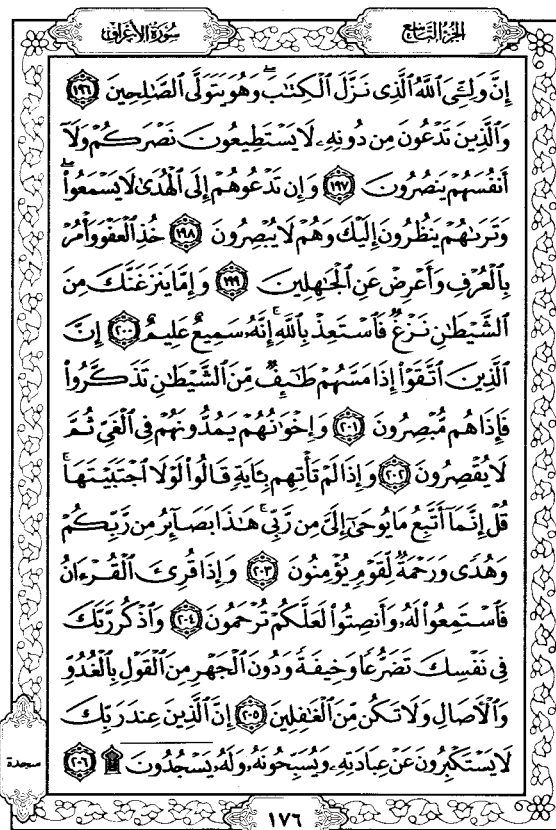 الجزء التاسع
سورة الأعراف
إِنَّ وَلِـِّۧىَ ٱللَّهُ ٱلَّذِى نَزَّلَ ٱلْكِتَـٰبَۖ وَهُوَ يَتَوَلَّى ٱلصَّـٰلِحِينَ ١٩٦
وَٱلَّذِينَ تَدْعُونَ مِن دُونِهِۦ لَا يَسْتَطِيعُونَ نَصْرَكُمْ وَلَآ
أَنفُسَهُمْ يَنصُرُونَ ١٩٧ وَإِن تَدْعُوهُمْ إِلَى ٱلْهُدَىٰ لَا يَسْمَعُوا۟ۖ
وَتَرَىٰهُمْ يَنظُرُونَ إِلَيْكَ وَهُمْ لَا يُبْصِرُونَ ١٩٨ خُذِ ٱلْعَفْوَ وَأْمُرْ
بِٱلْعُرْفِ وَأَعْرِضْ عَنِ ٱلْجَـٰهِلِينَ ١٩٩ وَإِمَّا يَنزَغَنَّكَ مِنَ
ٱلشَّيْطَـٰنِ نَزْغٌ فَٱسْتَعِذْ بِٱللَّهِۚ إِنَّهُۥ سَمِيعٌ عَلِيمٌ ٢٠٠ إِنَّ
ٱلَّذِينَ ٱتَّقَوْا۟ إِذَا مَسَّهُمْ طَـٰٓئِفٌ مِّنَ ٱلشَّيْطَـٰنِ تَذَكَّرُوا۟
فَإِذَا هُم مُّبْصِرُونَ ٢٠١ وَإِخْوَٰنُهُمْ يَمُدُّونَهُمْ فِى ٱلْغَىِّ ثُمَّ
لَا يُقْصِرُونَ ٢٠٢ وَإِذَا لَمْ تَأْتِهِم بِـَٔايَةٍ قَالُوا۟ لَوْلَا ٱجْتَبَيْتَهَاۚ
قُلْ إِنَّمَآ أَتَّبِعُ مَا يُوحَىٰٓ إِلَىَّ مِن رَّبِّىۚ هَـٰذَا بَصَآئِرُ مِن رَّبِّكُمْ
وَهُدًى وَرَحْمَةٌ لِّقَوْمٍ يُؤْمِنُونَ ٢٠٣ وَإِذَا قُرِئَ ٱلْقُرْءَانُ
فَٱسْتَمِعُوا۟ لَهُۥ وَأَنصِتُوا۟ لَعَلَّكُمْ تُرْحَمُونَ ٢٠٤ وَٱذْكُر رَّبَّكَ
فِى نَفْسِكَ تَضَرُّعًا وَخِيفَةً وَدُونَ ٱلْجَهْرِ مِنَ ٱلْقَوْلِ بِٱلْغُدُوِّ
وَٱلْـَٔاصَالِ وَلَا تَكُن مِّنَ ٱلْغَـٰفِلِينَ ٢٠٥ إِنَّ ٱلَّذِينَ عِندَ رَبِّكَ
لَا يَسْتَكْبِرُونَ عَنْ عِبَادَتِهِۦ وَيُسَبِّحُونَهُۥ وَلَهُۥ يَسْجُدُونَ ۩ ٢٠٦
سجدة
١٧٦